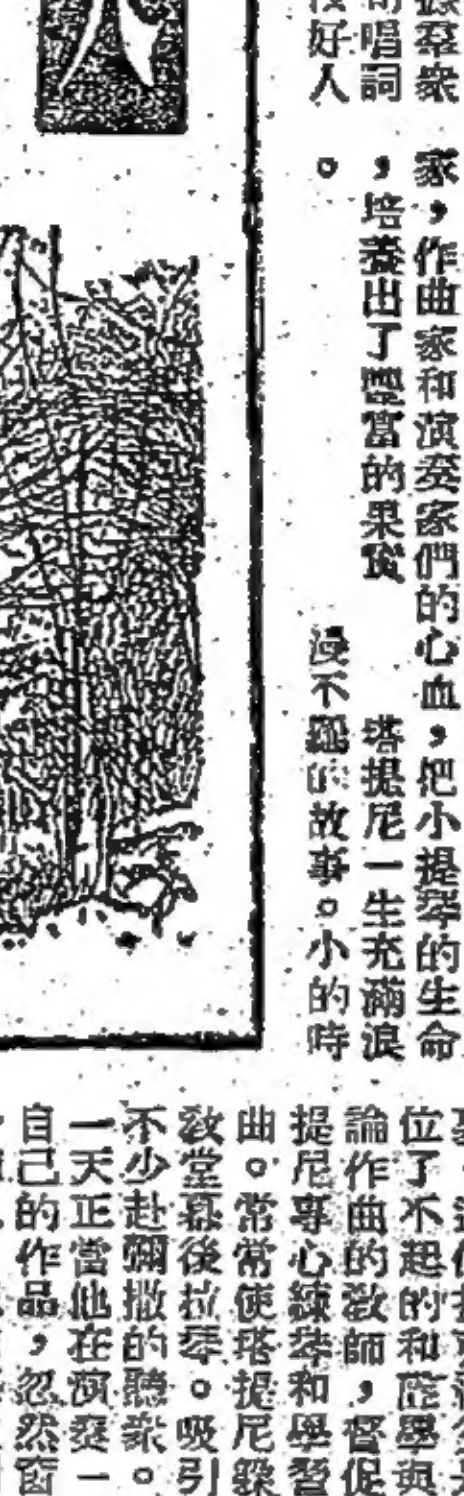 羣衆
唱詞
好人
家，作曲家和演奏家們的心血，把小提琴的生命
，培養出了豐富的果實
。
塔提尼一生充滿浪
漫不羈的故事。小的時
位了不起的和聲學與
論作曲的教師，督促
提尼專心練琴和學習
曲。常常使塔提尼躲
教堂幕後拉琴。吸引
不少赴彌撒的聽衆。
一天正當他在演奏一
自己的作品，忽然窗